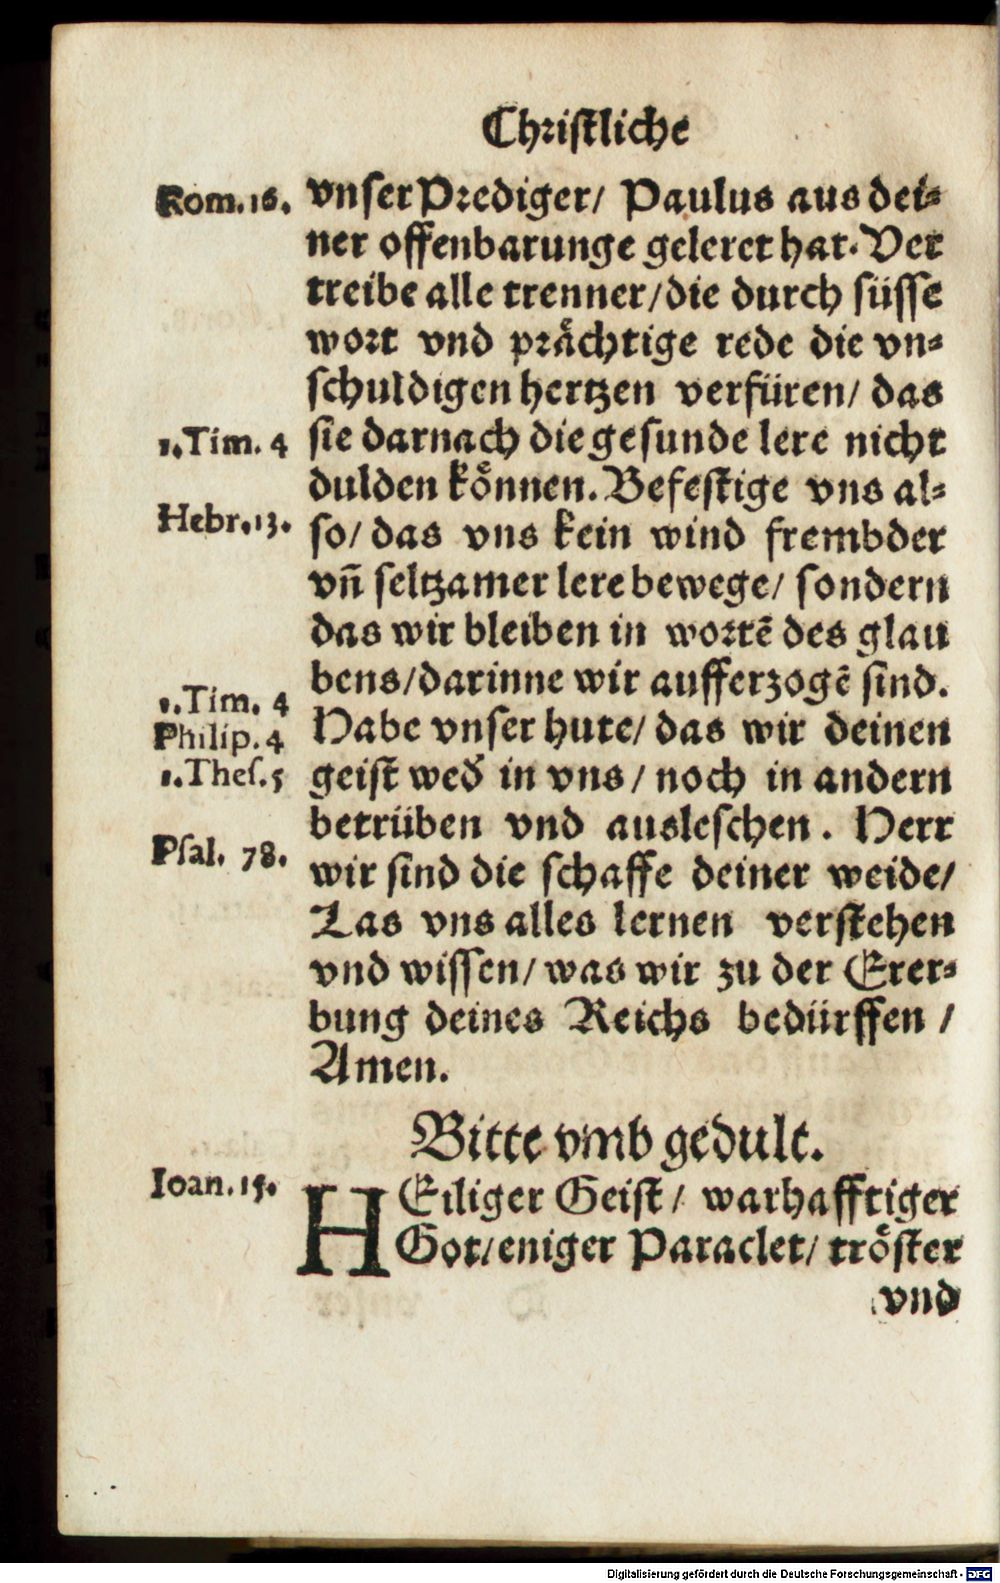 Christliche
Rom.16. vnser Prediger/ Paulus aus dei-
ner offenbarunge geleret hat. Ver
treibe alle trenner/die durch süsse
wort vnd prächtige rede die vn-
schuldigen hertzen verfüren/ das
1.Tim. 4 sie darnach die gesunde lere nicht
dulden können. Befestige vns al-
Hebr.13. so/ das vns kein wind frembder
vñ seltzamer lere bewege/ sondern
das wir bleiben in wortẽ des glau
bens/darinne wir aufferzogẽ sind.
1.Tim. 4
Philip.4 Habe vnser hute/ das wir deinen
1.Thes.5 geist wed̕ in vns/ noch in andern
betrüben vnd ausleschen. Herr
Psal. 78. wir sind die schaffe deiner weide/
Las vns alles lernen verstehen
vnd wissen/ was wir zu der Erer-
bung deines Reichs bedürffen /
Amen.
Bitte vmb gedult.
Ioan.15. HEiliger Geist/ warhafftiger
Got/einiger Paraclet/ tröster
vnd
Digitalisierung gefördert durch die Deutsche Forschungsgemeinschaft - DFG